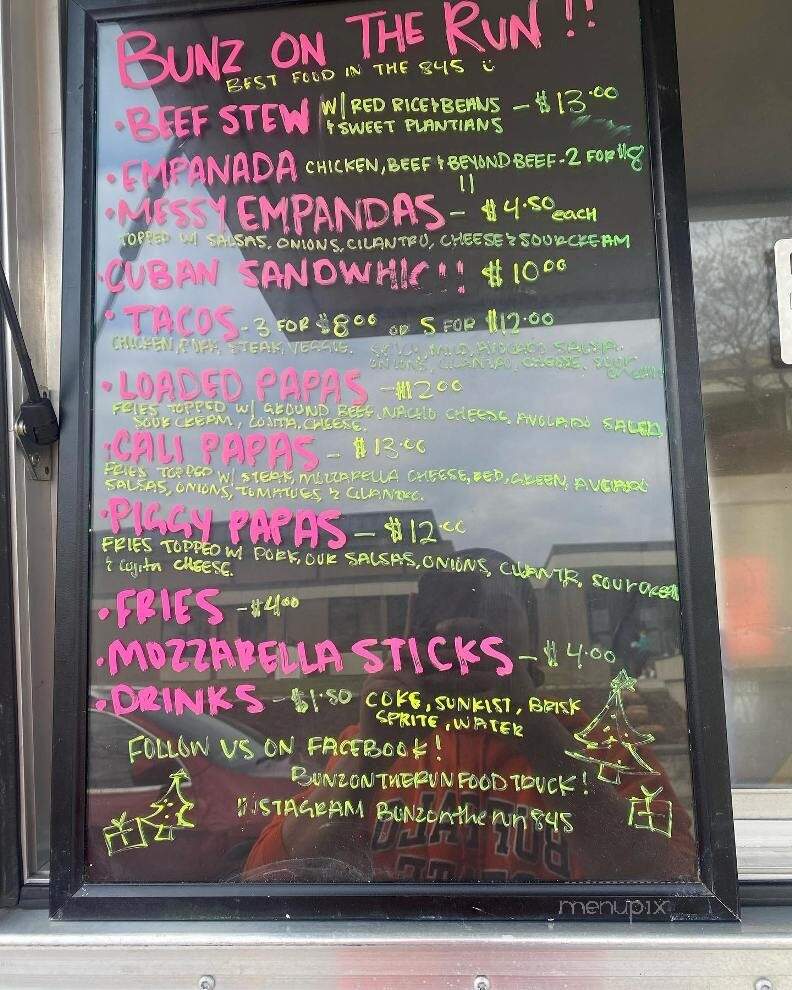 BUNZ ON THE RUN !!
BEST FOOD IN THE 845
• BEEF STEW W/ RED RICE & BEANS - $13.00
& SWEET PLANTIANS
• EMPANADA CHICKEN, BEEF & BEYOND BEEF - 2 FOR $8
• MESSY EMPANDAS - $4.50 each
TOPPED W/ SALSAS, ONIONS, CILANTRO, CHEESE & SOURCREAM
• CUBAN SANDWHIC!! $10.00
• TACOS - 3 FOR $8.00 OR 5 FOR $12.00
CHICKEN, PORK, STEAK, VEGGIE. MILD, AVOCADO SALSA
ONIONS, CILANTRO, CHEESE, SOUR CREAM
• LOADED PAPAS - $12.00
FRIES TOPPED W/ GROUND BEEF, NACHO CHEESE, AVOCADO SALSA
SOUR CREAM, COJITA, CHEESE.
• CALI PAPAS - $13.00
FRIES TOPPED W/ STEAK, MOZZARELLA CHEESE, RED, GREEN, AVOCADO
SALSAS, ONIONS, TOMATOES & CILANTRO.
• PIGGY PAPAS - $12.00
FRIES TOPPED W/ PORK, OUR SALSAS, ONIONS, CILANTR, sour cream
& Cojita CHEESE.
• FRIES - $4.00
• MOZZARELLA STICKS - $4.00
• DRINKS - $1.50 COKE, SUNKIST, BRISK
SPRITE, WATER
FOLLOW US ON FACEBOOK!
BUNZONTHERUN FOOD TRUCK!
INSTAGRAM Bunzontherun845
BUFFALO
STATE
menupix